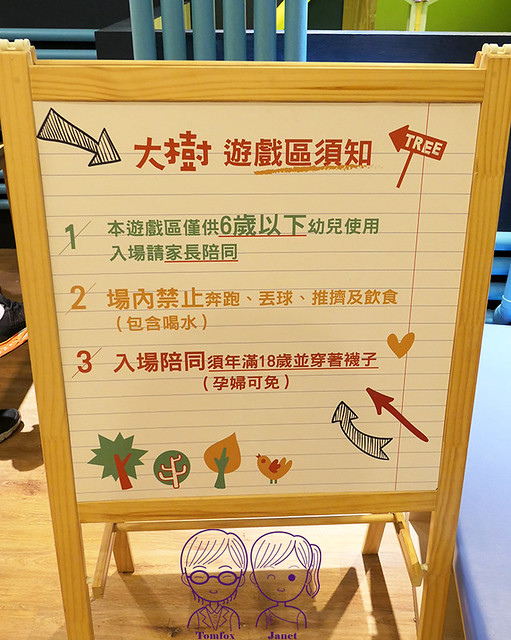 大樹 遊戲區須知
TREE
1 本遊戲區僅供6歲以下幼兒使用
入場請家長陪同
2 場內禁止奔跑、丟球、推擠及飲食
(包含喝水)
3 入場陪同須年滿18歲並穿著襪子
(孕婦可免)
Tomfox Janet